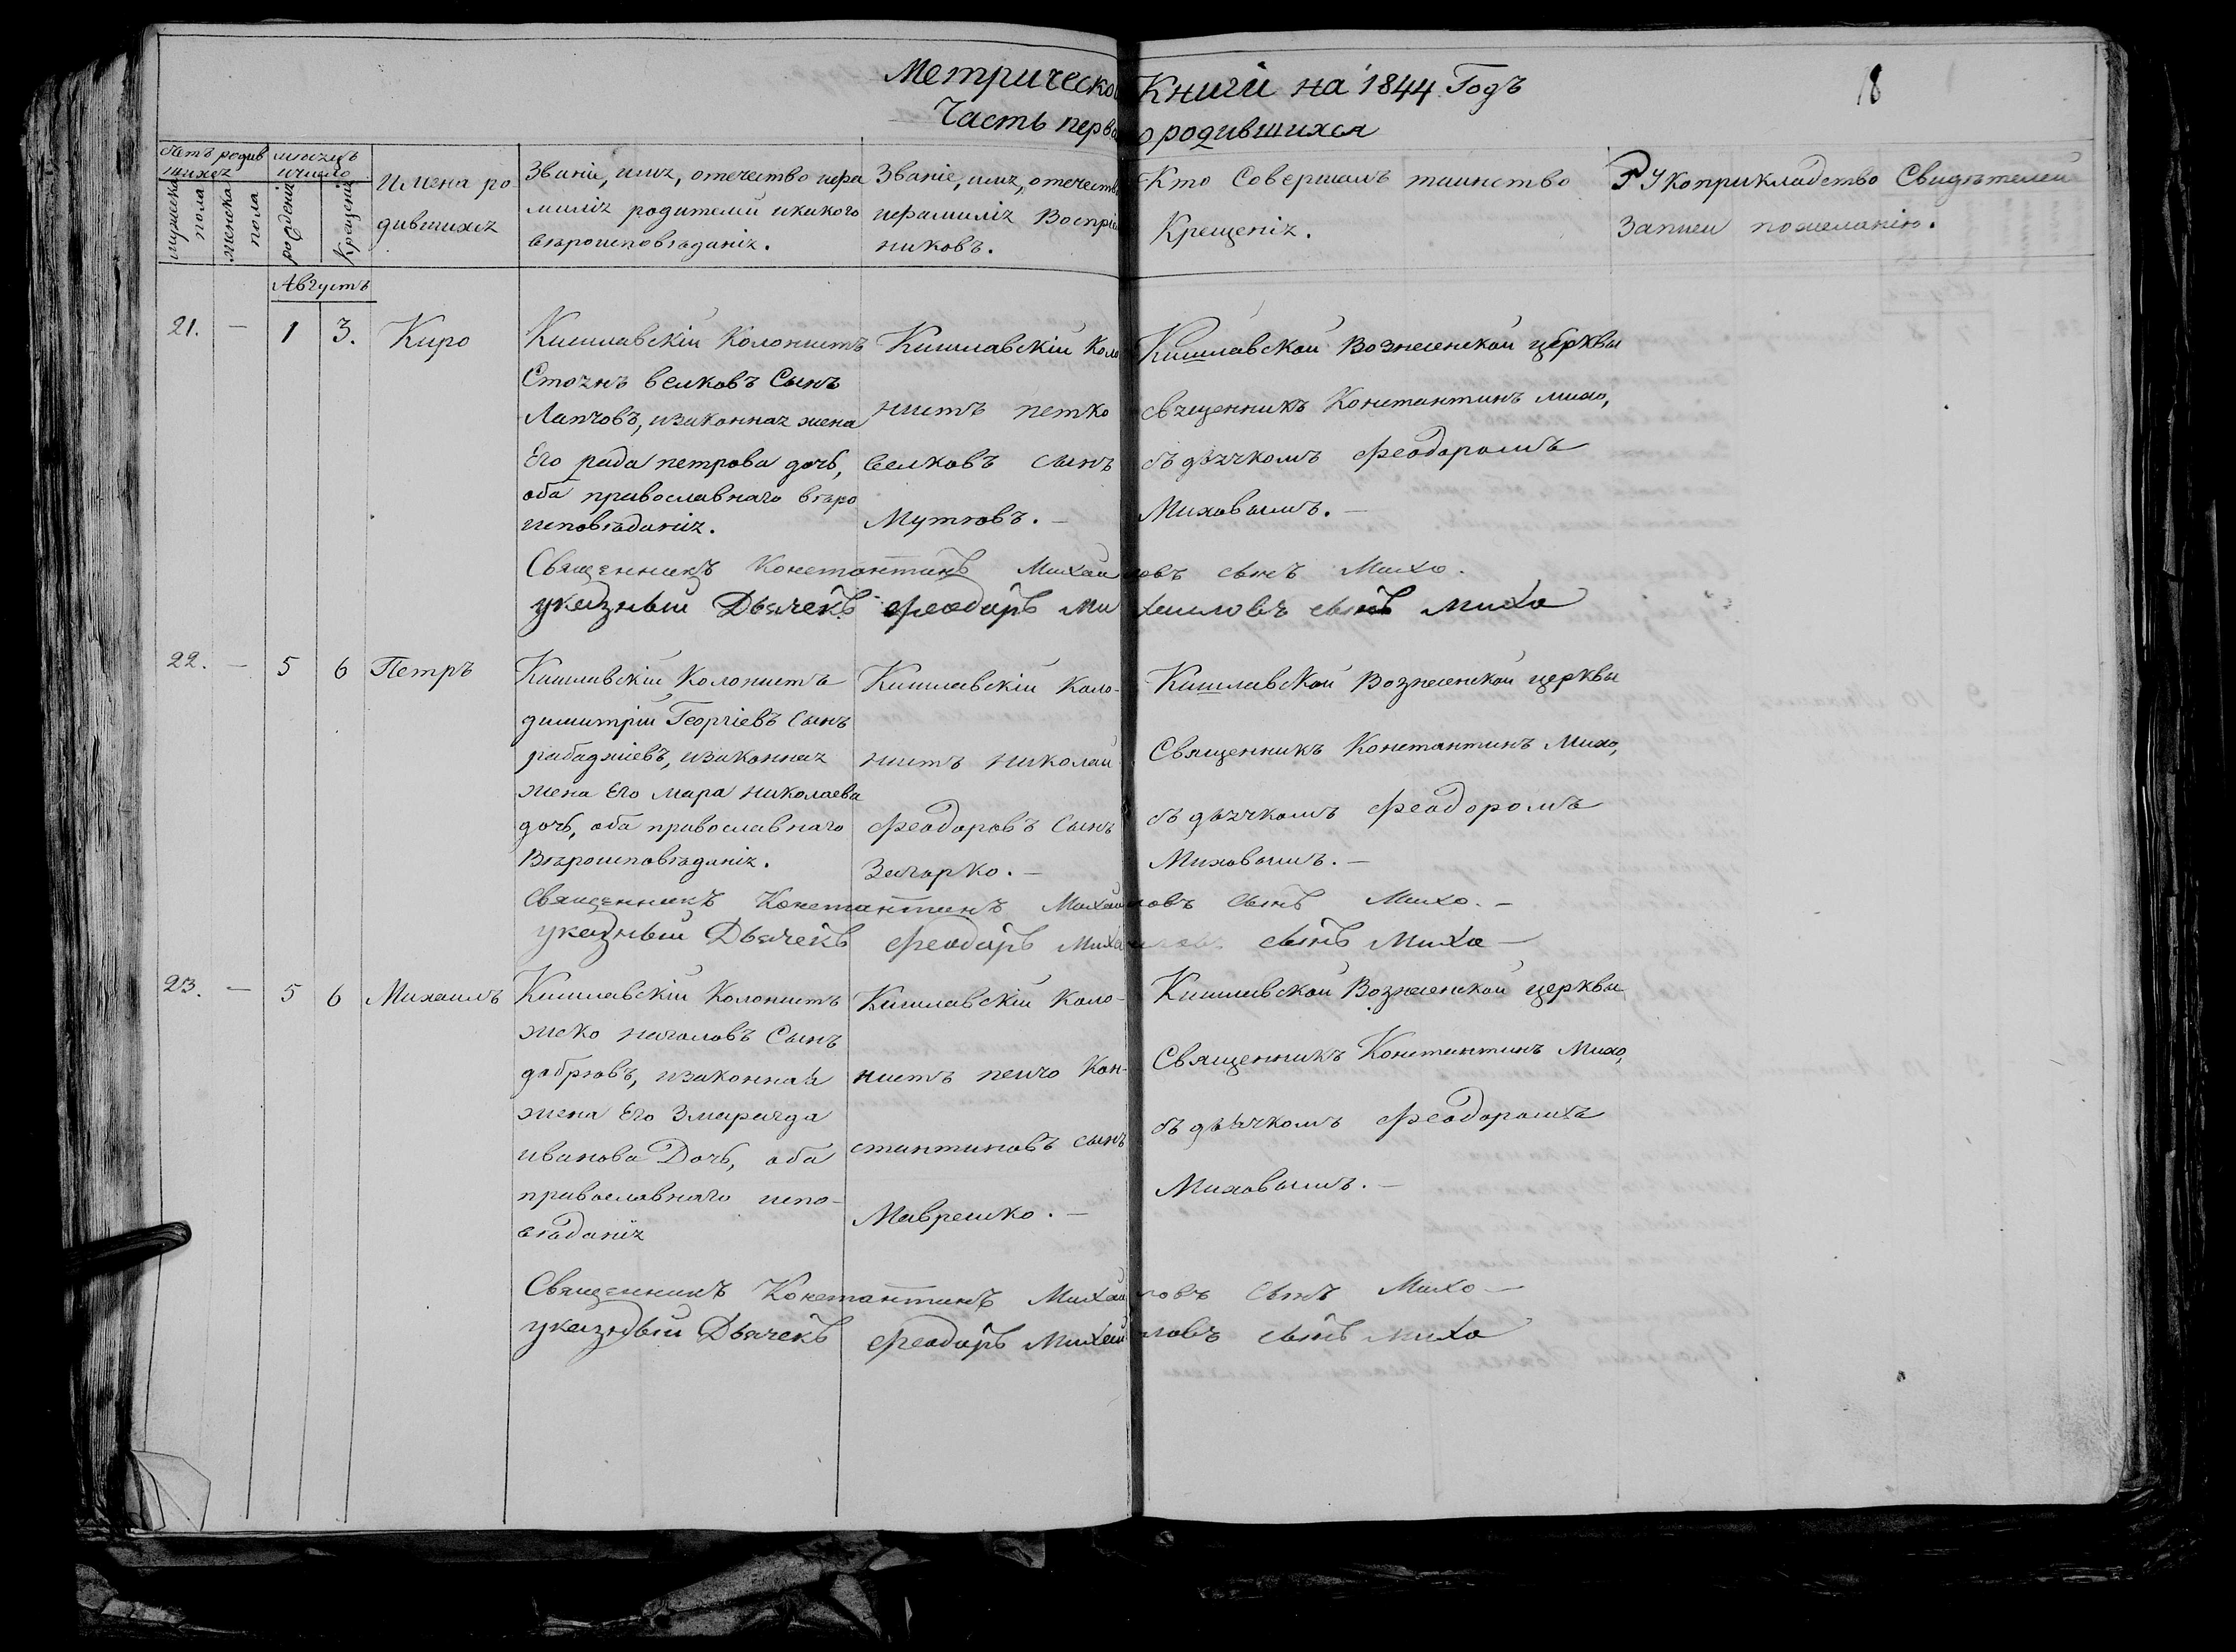 Метрической Книги на 1844 Годъ
18
Часть перва о родившихся
Летъ родив шихся
мѣсяцъ и число
мужеска пола
женска пола
рожденія
Крещенія
Имена ро дившихя
Званіе, имя, отечество ифа милія родителей икакого вѣроисповѣданія.
Званіе, имя, отечество ифамилія Воспріем никовъ.
Кто Совершалъ таинство Крещенія.
Рукоприкладство Свидѣтелей Записи пожеланію.
Августъ
21. — 1 3. Киро
Кишлавскій Колонистъ
Стоянъ велковъ Сынъ
Лапчовъ, изаконная жена
Его рада петрова дочь,
оба православнаго вѣро
исповѣданія.
Кишлавскій Коло
нистъ петко
велковъ сынъ
Мутковъ. —
Кишлавской Вознесенской церквы
священникъ Константинъ Михо,
съ дячкомъ Феодоромъ
Миховымъ. —
Священникъ Константинъ Михайловъ сынъ Михо.
указный Дьячекъ Феодоръ Михаиловъ сынъ Михо
22. — 5 6 Петръ
Кишлавскій Колонистъ
димитрій Георгіевъ Сынъ
рабаджіевъ, изаконная
жена Его мара николаева
дочь, оба православнаго
Вѣроисповѣданія.
Кишлавскій Коло-
нистъ николай
Феодоровъ Сынъ
Загорко. —
Кишлавской Вознесенской церквы
Священникъ Константинъ Михо,
съ дячкомъ Феодоромъ
Миховымъ. —
Священникъ Константинъ Михайловъ сынъ Михо. —
указный Дьячекъ Феодоръ Михаиловъ сынъ Михо —
23. — 5 6 Михаилъ
Кишлавскій Колонистъ
жеко неголовъ Сынъ
добровъ, изаконная
жена Его Змарагда
иванова Дочь, оба
православнаго испо-
вѣданія
Кишлавскій Коло-
нистъ пенчо Кон-
стантиновъ сынъ
Маврешко. —
Кишлавской Вознесенской церквы
Священникъ Константинъ Михо,
съ дьячкомъ Феодоромъ
Миховымъ. —
Священникъ Константинъ Михайловъ сынъ Михо —
указный Дьячекъ Феодоръ Михаиловъ сынъ Михо